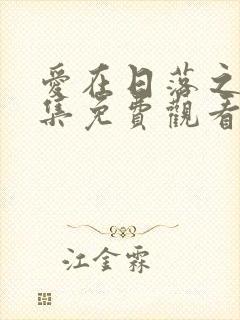 愛在日落之
集免費觀看
江金霖